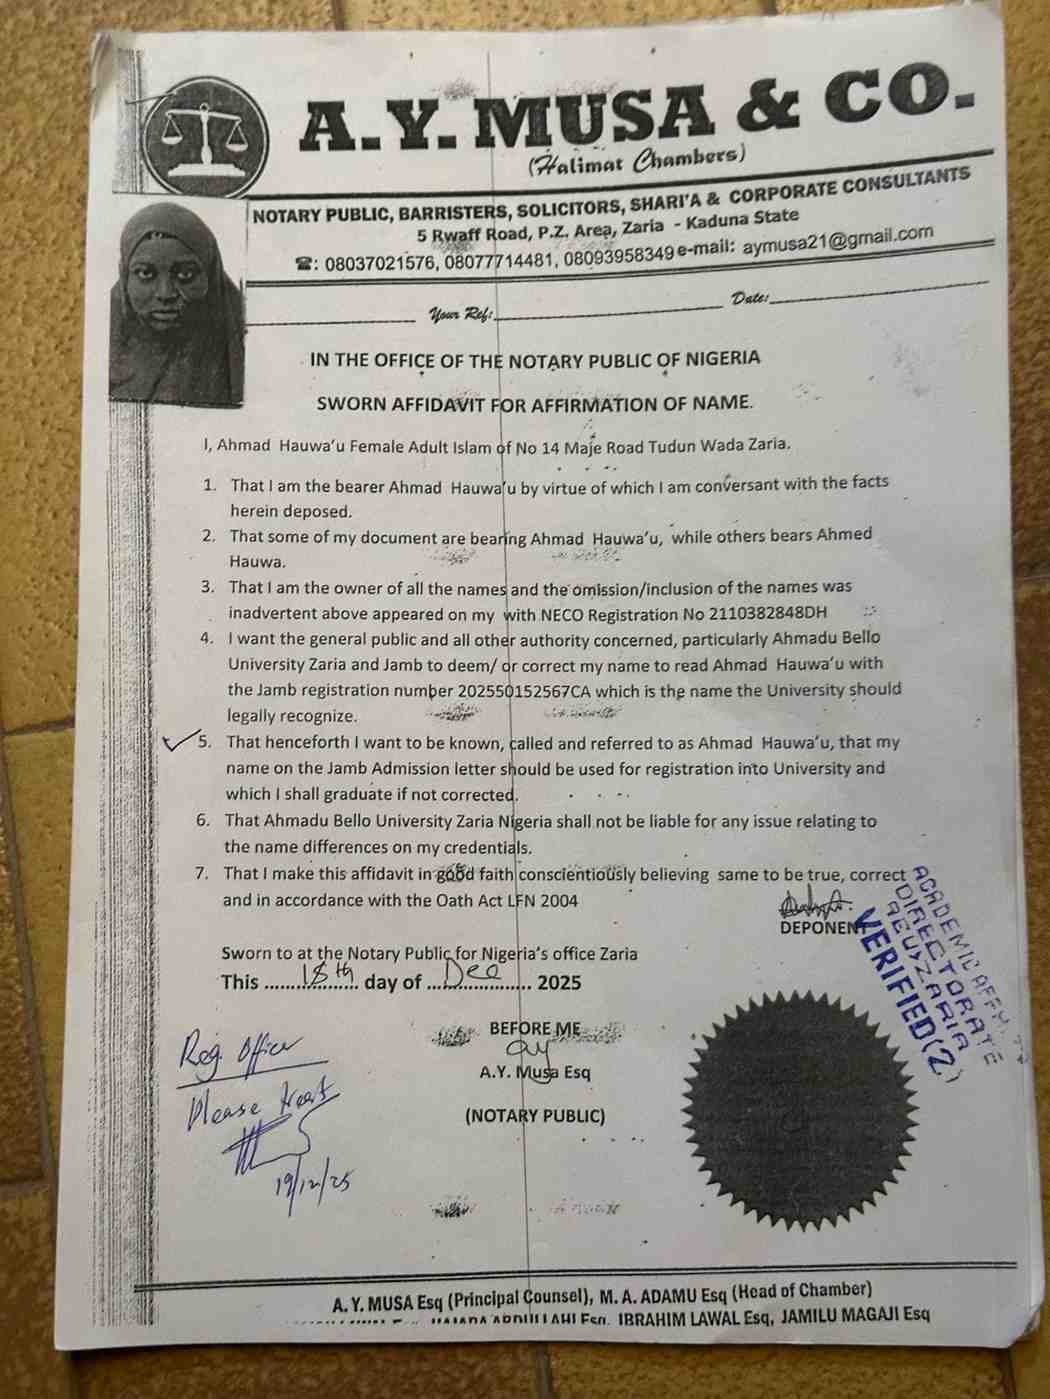 A.Y. MUSA & CO.
(Halimat Chambers)
NOTARY PUBLIC, BARRISTERS, SOLICITORS, SHARI'A & CORPORATE CONSULTANTS
5 Rwaff Road, P.Z. Area, Zaria - Kaduna State
☎: 08037021576, 08077714481, 08093958349 e-mail: aymusa21@gmail.com
Your Ref: Date:
IN THE OFFICE OF THE NOTARY PUBLIC OF NIGERIA
SWORN AFFIDAVIT FOR AFFIRMATION OF NAME.
I, Ahmad Hauwa'u Female Adult Islam of No 14 Maje Road Tudun Wada Zaria.
1. That I am the bearer Ahmad Hauwa'u by virtue of which I am conversant with the facts
herein deposed.
2. That some of my document are bearing Ahmad Hauwa'u, while others bears Ahmed
Hauwa.
3. That I am the owner of all the names and the omission/inclusion of the names was
inadvertent above appeared on my with NECO Registration No 2110382848DH
4. I want the general public and all other authority concerned, particularly Ahmadu Bello
University Zaria and Jamb to deem/ or correct my name to read Ahmad Hauwa'u with
the Jamb registration number 202550152567CA which is the name the University should
legally recognize.
5. That henceforth I want to be known, called and referred to as Ahmad Hauwa'u, that my
name on the Jamb Admission letter should be used for registration into University and
which I shall graduate if not corrected.
6. That Ahmadu Bello University Zaria Nigeria shall not be liable for any issue relating to
the name differences on my credentials.
7. That I make this affidavit in good faith conscientiously believing same to be true, correct
and in accordance with the Oath Act LFN 2004
DEPONENT
ACADEMIC AFF
DIRECTORATE
ZARIA
VERIFIED (2)
Sworn to at the Notary Public for Nigeria's office Zaria
This ......18th...... day of ...Dec............ 2025
BEFORE ME
A.Y. Musa Esq
(NOTARY PUBLIC)
Reg. Officer
Please treat
19/12/25
A. Y. MUSA Esq (Principal Counsel), M. A. ADAMU Esq (Head of Chamber)
ABDULLAHI Esq, IBRAHIM LAWAL Esq, JAMILU MAGAJI Esq